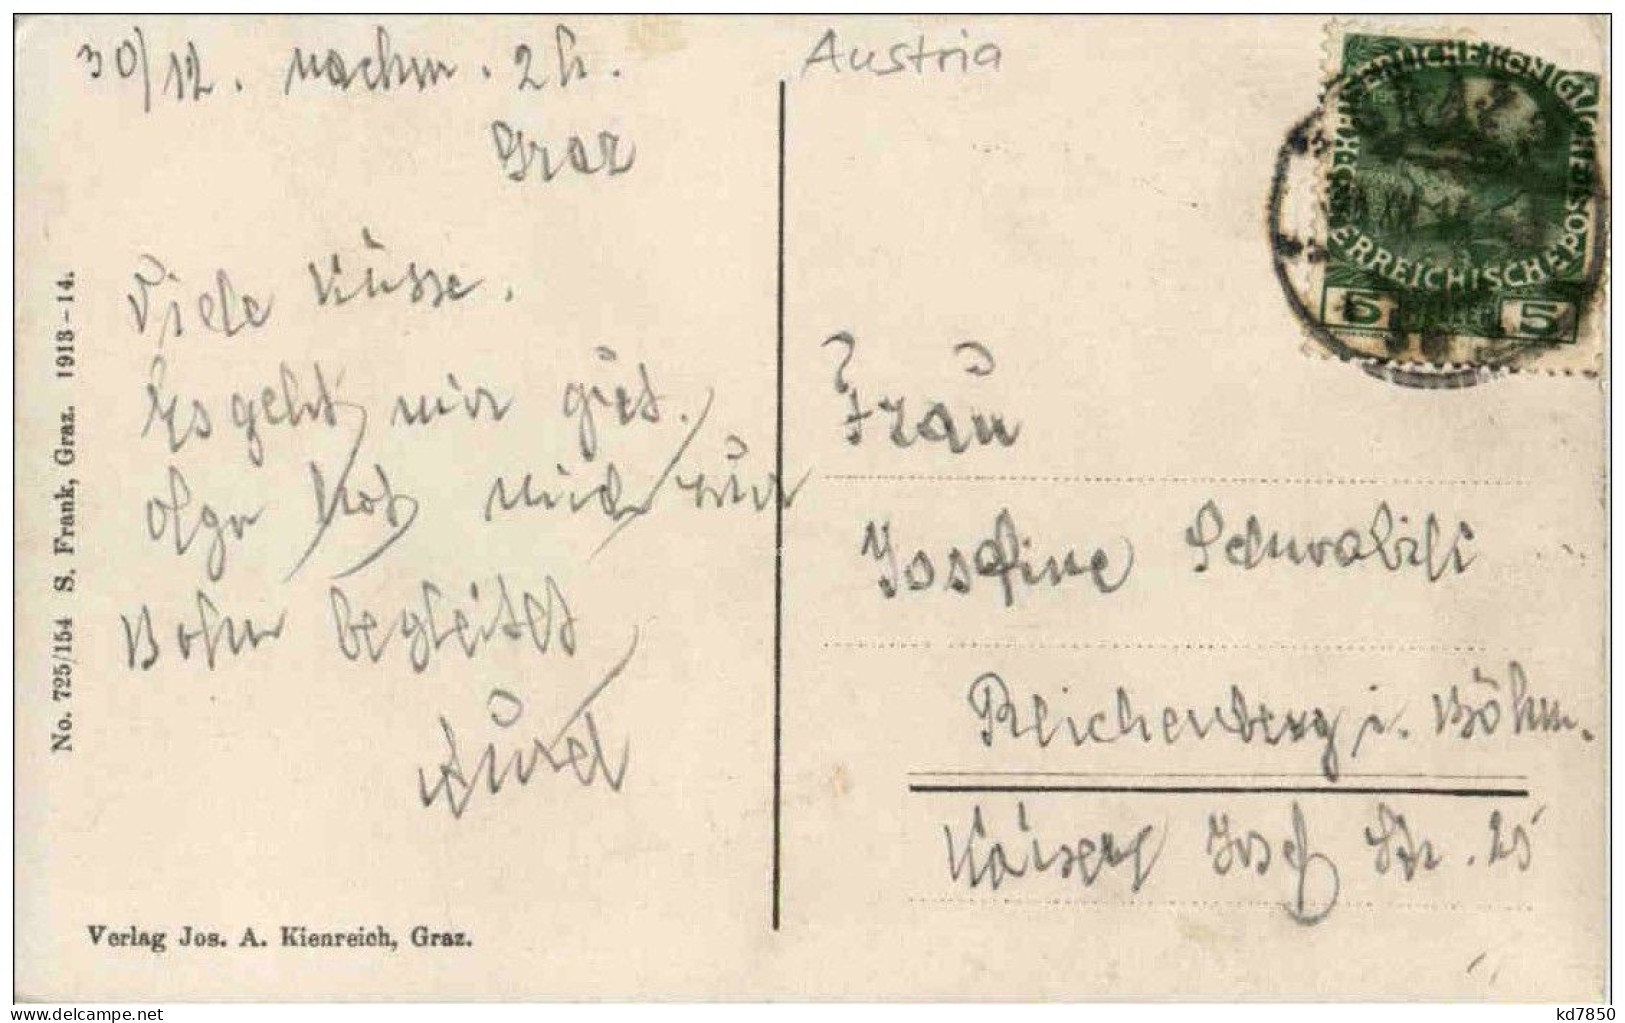 30/12. nachm. 2h.
Graz
Viele Küsse.
Es geht mir gut.
Olga hat mich zur
Bahn begleitet
Austria
KAISERLICHE KÖNIGLICHE
ÖSTERREICHISCHE POST
5 5
Frau
Josefine
Reichenberg i. Böhm.
Kaiser Josef Str. 25
No. 725/154 S. Frank, Graz. 1913-14.
Verlag Jos. A. Kienreich, Graz.
www.delcampe.net
kd7850